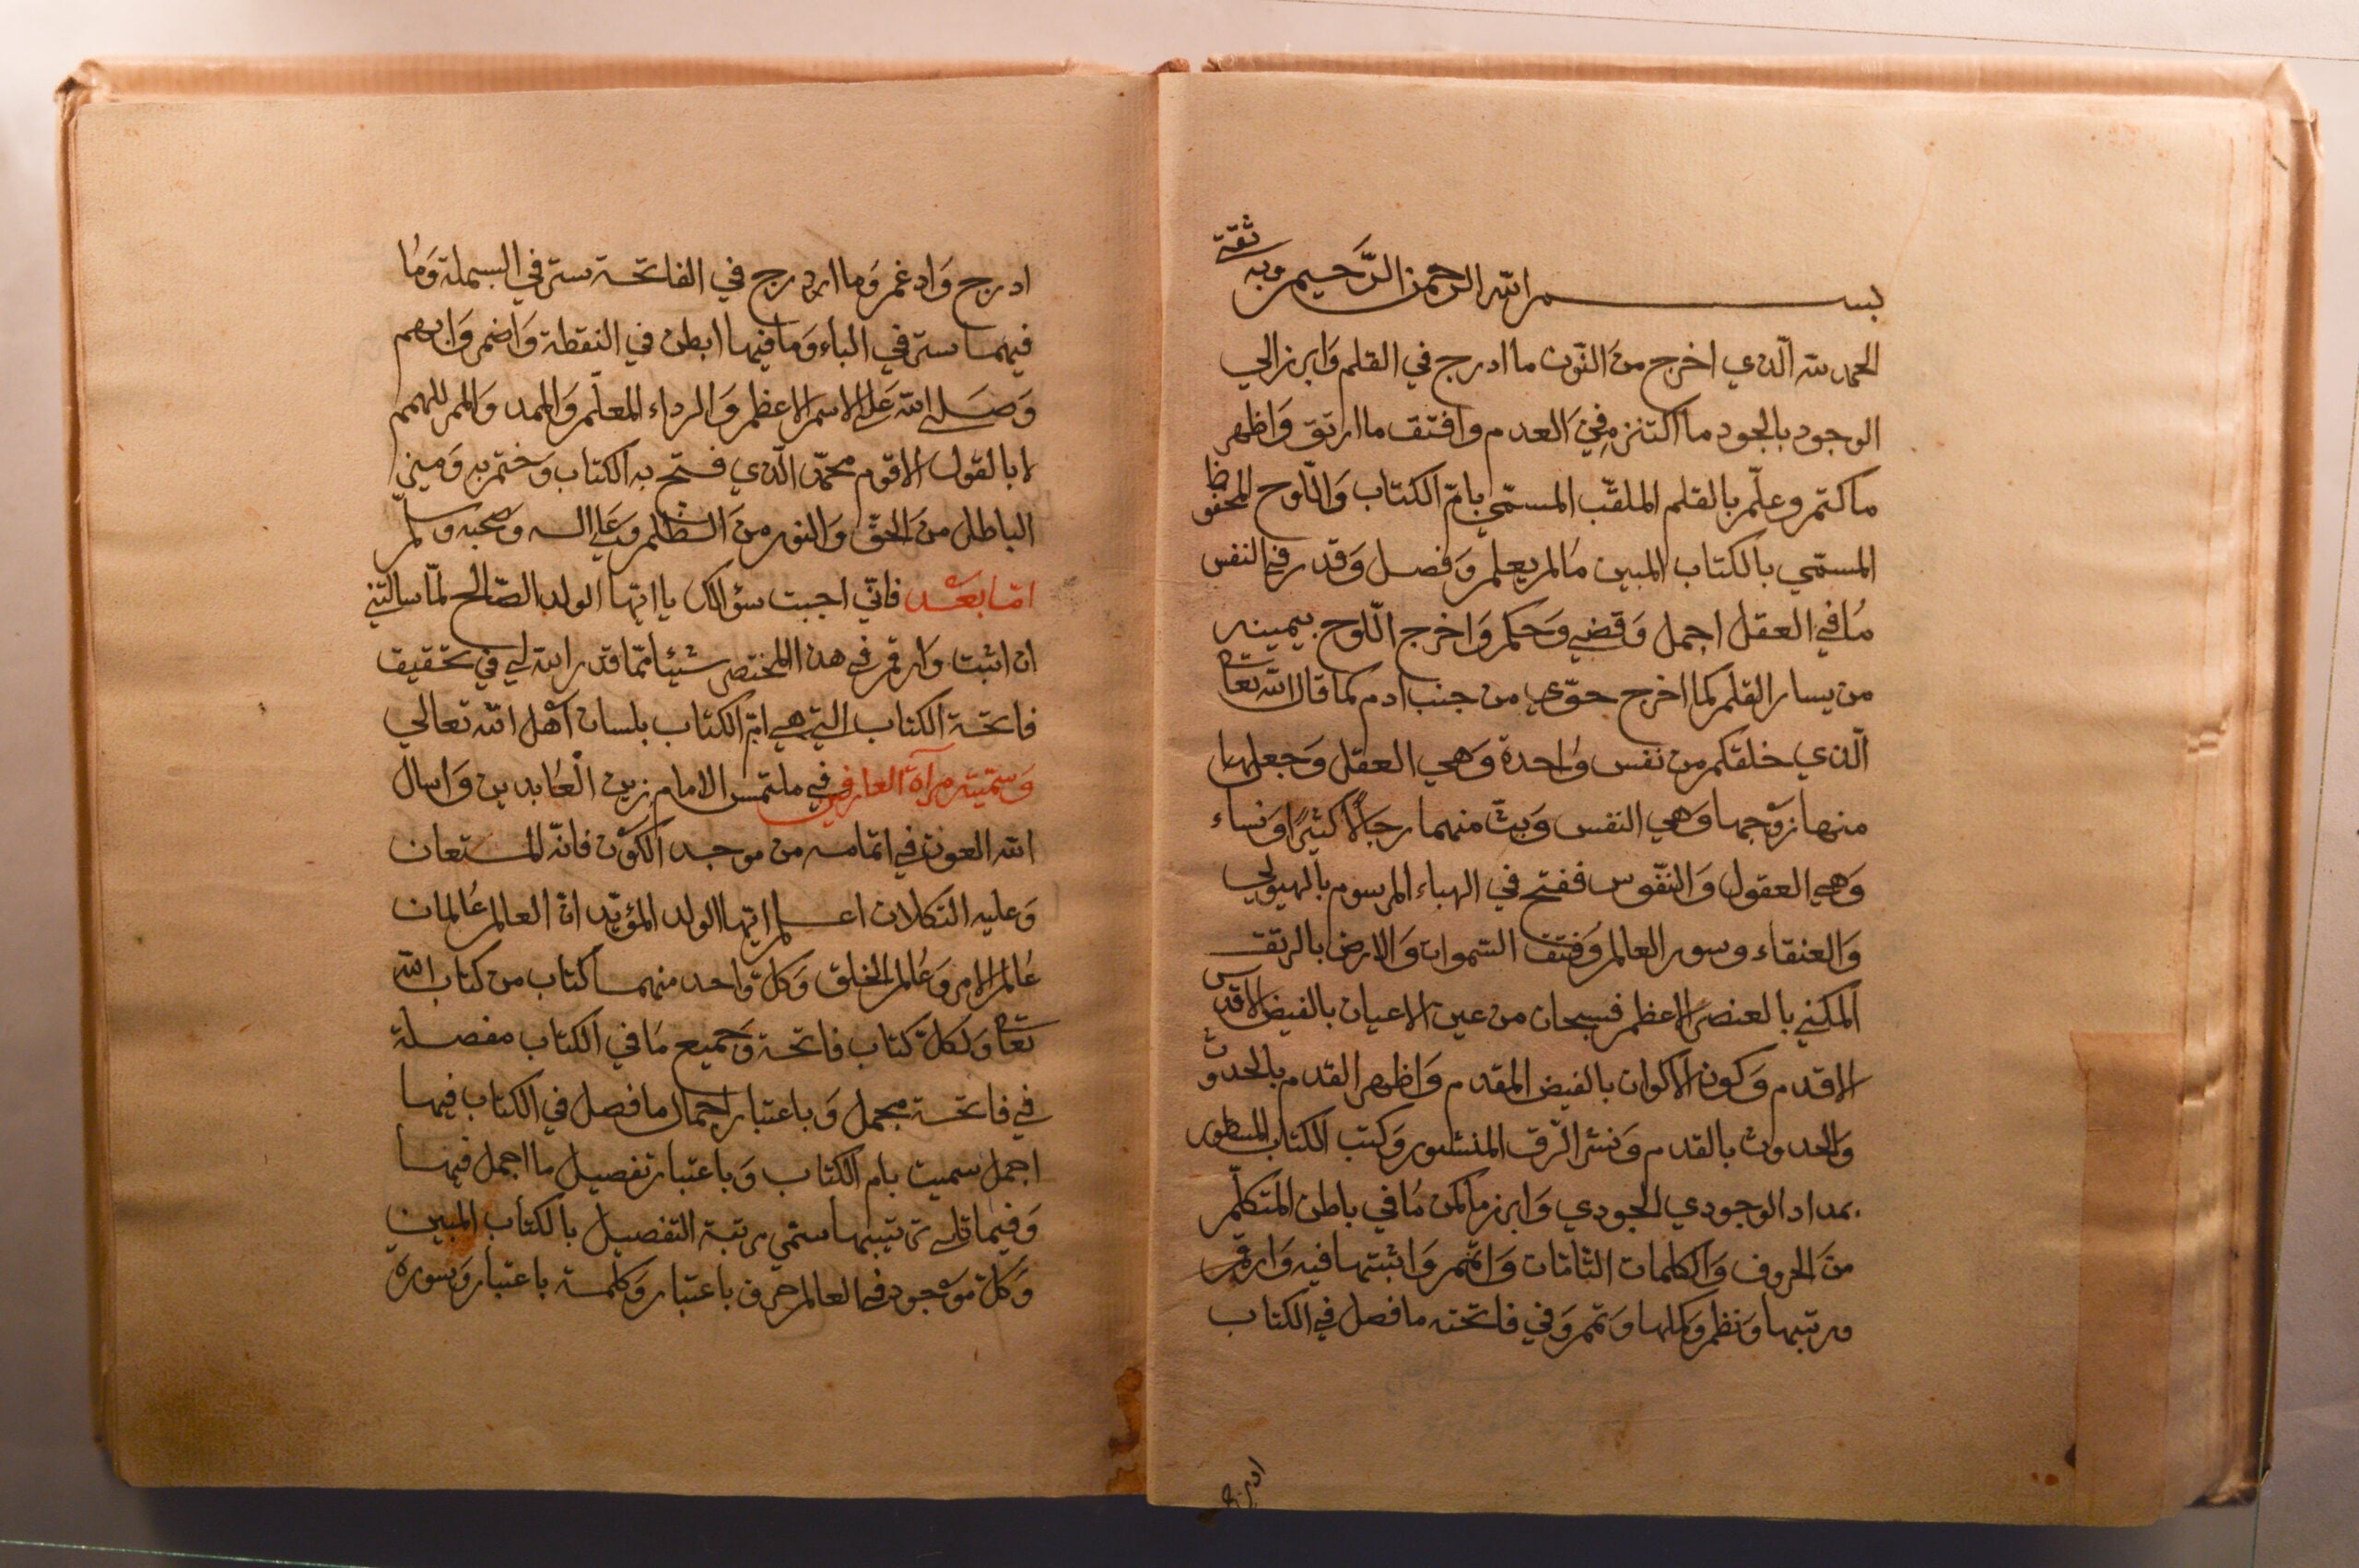 بسم الله الرحمن الرَّحيم وبه ثقتي
الحمد لله الّذي اخرج منَ النّون ما ادرج في القلم وَابرز الي
الوجود بالجود ما اكتنز في العدم وافتق ما ارتق وَاظهر
ما كتم وعلّم بالقلم الملقّب المسمّي بامّ الكتاب وَاللّوح المحفوظ
المسمّي بالكتاب المبين مَا لم يعلم وَفصل وَقدر في النفس
مَا في العقل اجمل وَقضي وَحكم وَاخرج اللّوح بيمينه
من يسار القلم كما اخرج حوّي من جنب ادم كما قال الله تعا
الّذي خلقكم من نفس وَاحدة وَهي العقل وَجعلها
منها زوْجها وَهي النفس وَبثّ منهما رجَالًا كثيرًا وَنساء
وَهي العقول وَالنفّوس ففتح في الهباء المرسوم بالهيولي
وَالعنقاء وسور العالم وَفتق السّموات وَالارض بالرتق
المكني بالعنصر الاعظم فسبحان من عين الاعيان بالفيض الاقدس
الاقدم وَكون الاكوان بالفيض المقدم وَاظهر القدم بالحدوث
وَالحدوث بالقدم وَنشر الرّق المنشور وَكتب الكتاب المسطور
بمداد الوجودي الجودي وَابرز ما كمن مَا في باطن المتكلّم
منَ الحروف وَالكلمات التّامّات وَاتمّم وَاثبتها فيه وَارقم
ورتبها وَنظم وَكملها وَتمم وَفي فاتحته ما فصل في الكتاب
ادرج
ادرج وَادغم وَما ادرج في الفاتحة ستر في البسملة وَمَا
فيهما ستر في الباء وَما فيها ابطن في النقطة وَاضمر وَابهم
وَصَلي الله عَلى الاسم الاعظم وَالرداء المعلّم وَالممد وَالممر للهمم
لا بالقول الاقوم محمّد الّذي فتح به الكتاب وَختم به وَميز
الباطل منَ الحقّ وَالنور منَ الظلم وَعَلي اله وَصحبه وسلّم
امّا بعْد فانّي اجبت سؤالك يا ايّها الولد الصّالح لمّا سالتني
ان اثبت وَارقم في هذا المختصر شيئا ممّا قدر الله لي في تحقيق
فاتحة الكتاب التي هي امّ الكتاب بلسان اهْل الله تعالي
وَسمّيته مرآة العارفين في ملتمس الامام زين العَابدين وَاسال
الله العون في اتمامه من موجد الكوْن فانّه المستعان
وَعليه التكلان اعلم ايّها الولد المؤيّد انّ العالم عَالمان
عَالم الامر وَعَالم الخلق وَكلّ وَاحد منهما كتاب من كتاب الله
تعا وَلكلّ كتاب فاتحة وَجميع مَا في الكتاب مفصلة
في فاتحة مجمل وَباعتبار اجمال ما فصل في الكتاب فيها
اجمل سميت بام الكتاب وَباعتبار تفصيل ما اجمل فيها
وَفيما ترتيبها سمّي مرتبة التفصيل بالكتاب المبين
وَكلّ موْجود في العالم حرف باعتبار وَكلمة باعتبار وَسورة